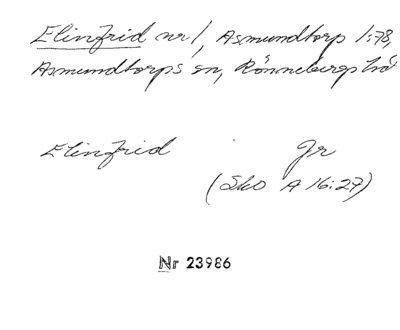 Elinfrid nr 1, Asmundtorp 1:78,
Asmundtorps sn, Rönnebergs hd
Elinfrid Jr
(Sko A 16:27)
Nr 23986